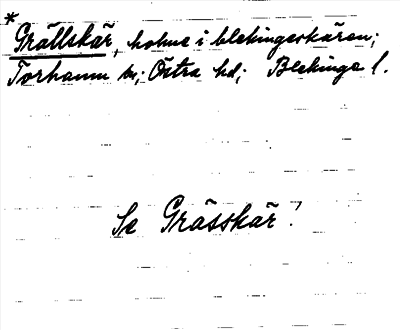 *
Grällskär, holme i blekingeskären;
Torhamn sn; Östra hd; Blekinge l.
Se Grässkär!